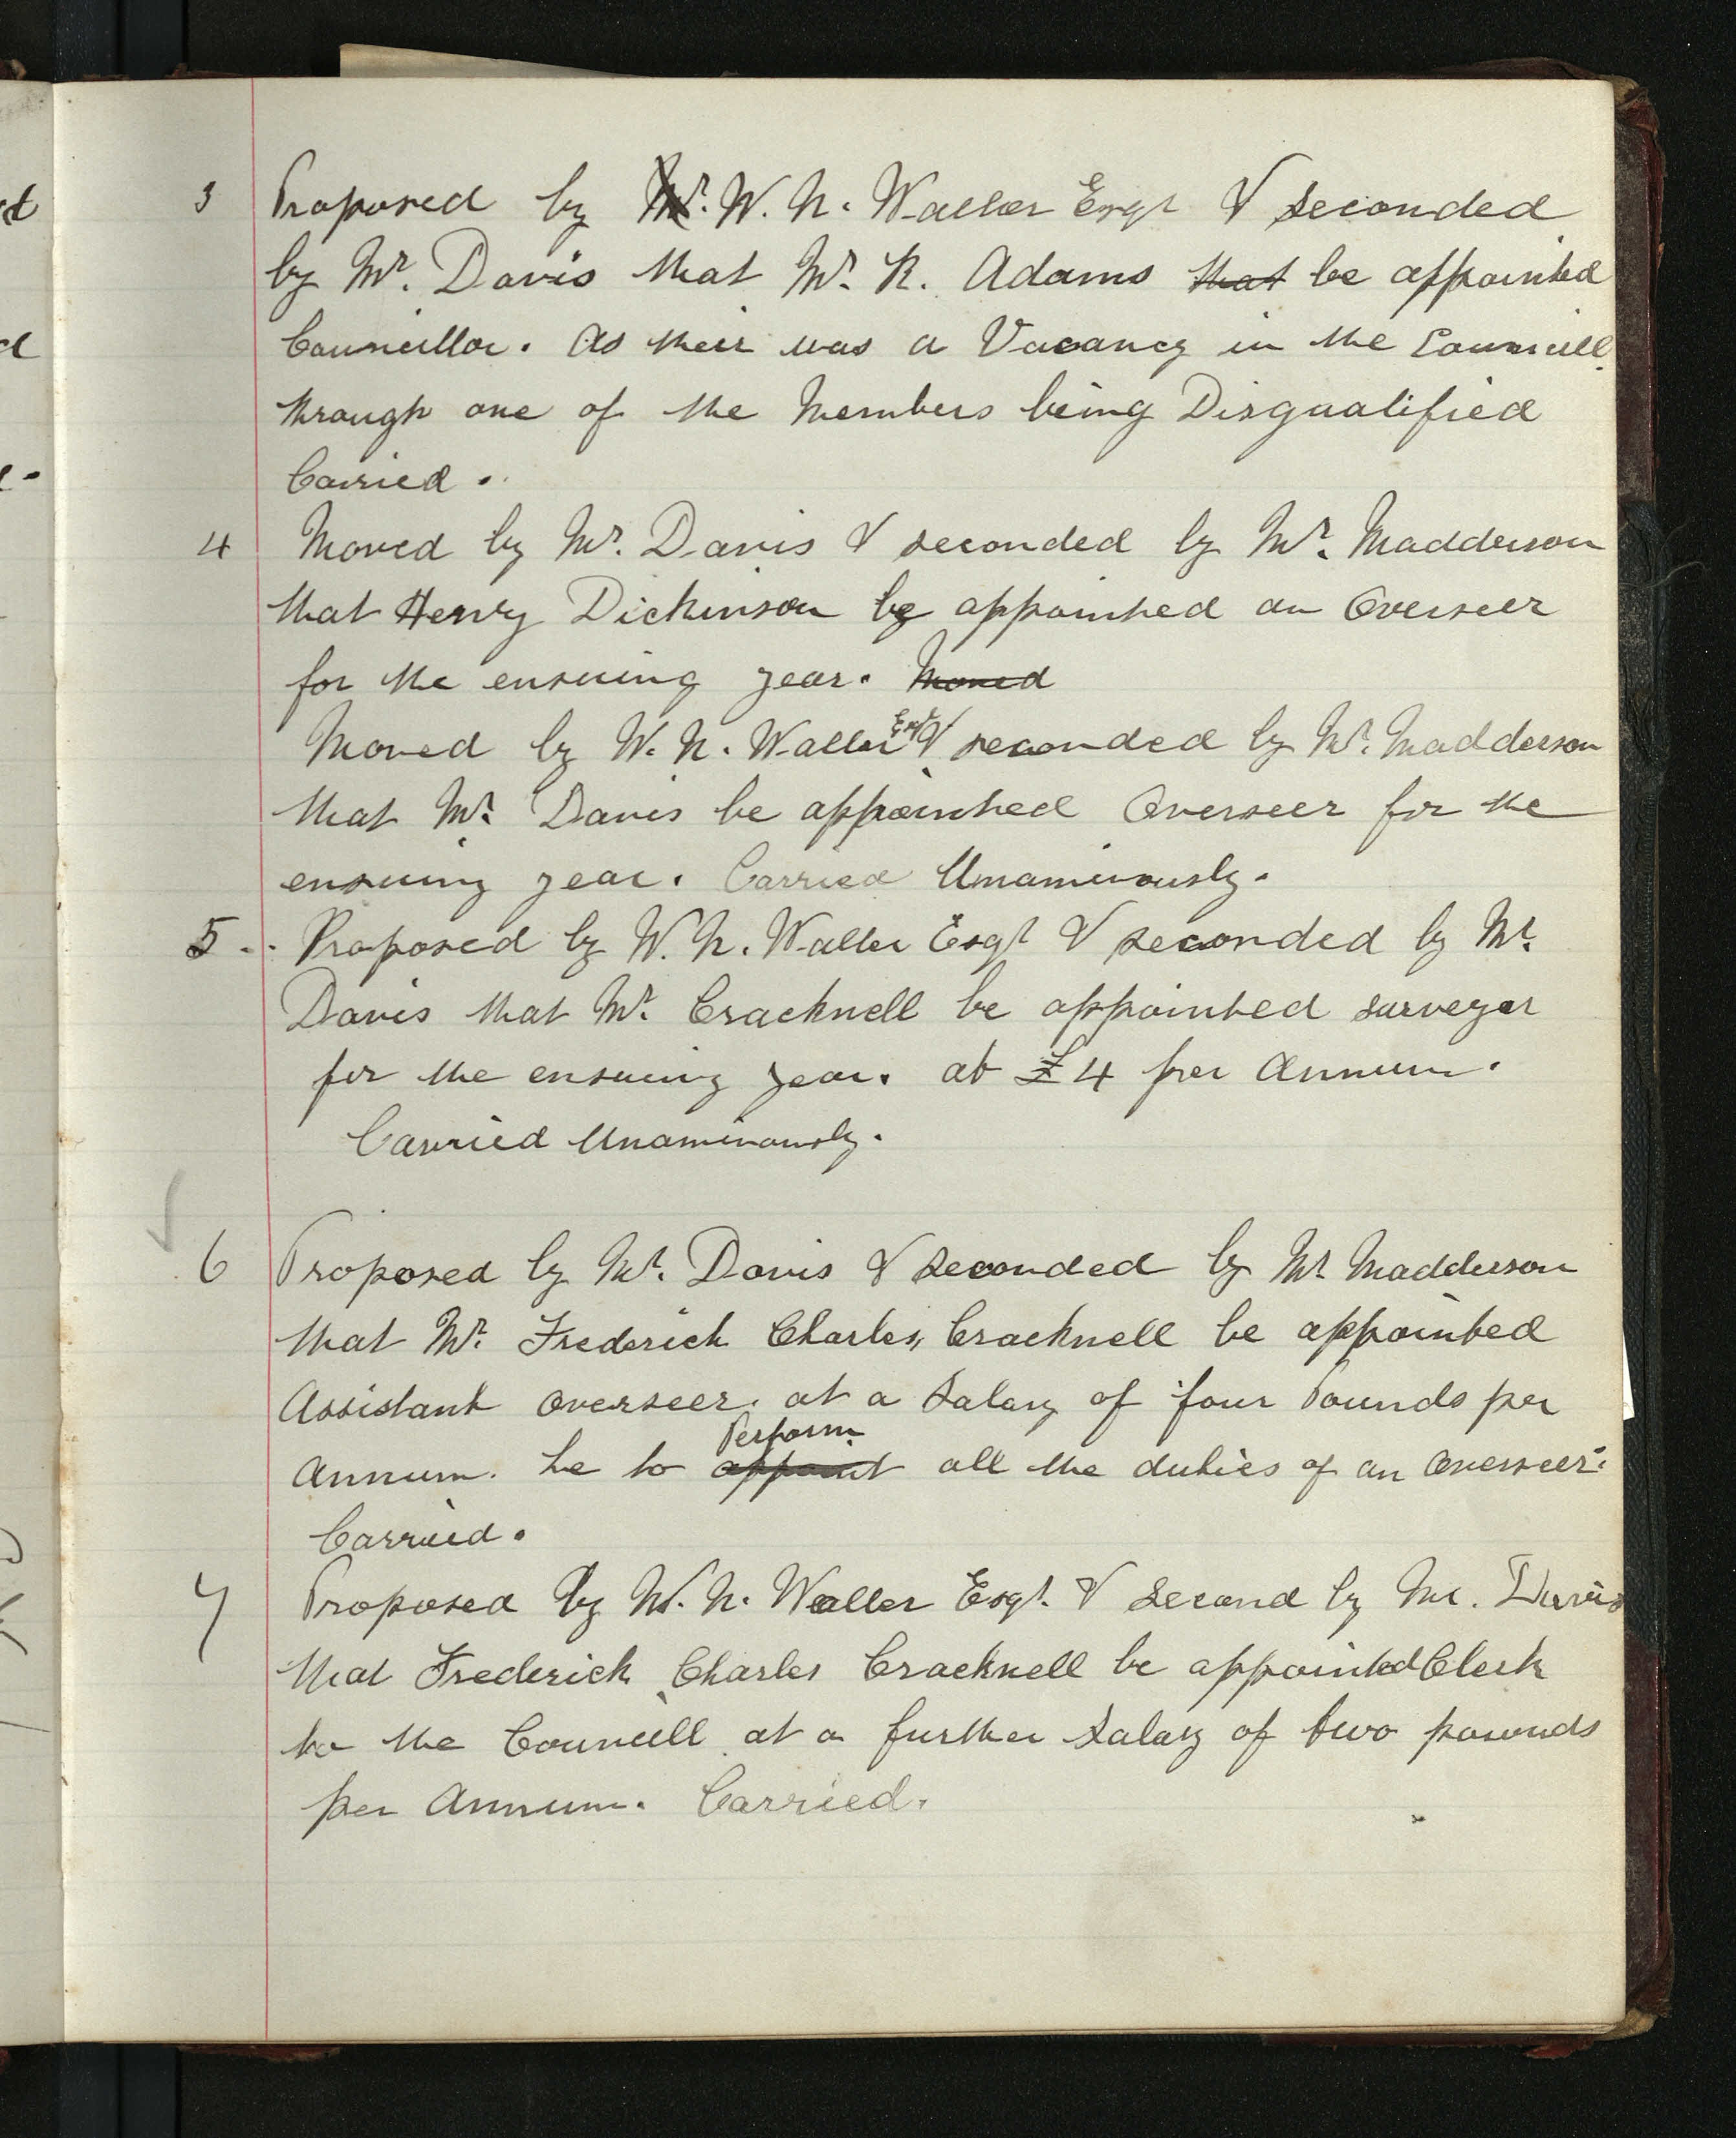 3 Proposed by Mr. W. N. Waller Esqr & seconded
by Mr. Davis that Mr. R. Adams that be appointed
Councillor. As their was a Vacancy in the Councill
through one of the Members being Disqualified
Carried.
4 Moved by Mr. Davis & seconded by Mr. Madderson
that Henry Dickinson be appointed an Overseer
for the ensuing year. Moved
Moved by W. N. Waller Esqr & seconded by Mr. Madderson
that Mr. Davis be appointed Overseer for the
ensuing year. Carried Unaminously.
5. Proposed by W. N. Waller Esqr & seconded by Mr.
Davis that Mr. Cracknell be appointed surveyor
for the ensuing year. at £4 per Annum.
Carried Unaminously.
6 Proposed by Mr. Davis & seconded by Mr. Madderson
that Mr. Frederick Charles, Cracknell be appointed
Assistant overseer. at a Salary of four Pounds per
Perform
Annum. he to appoint all the duties of an Overseer.
Carried.
7 Proposed by W. N. Waller Esqr. & Second by Mr. Davis
that Frederick Charles Cracknell be appointed Clerk
to the Councill at a further Salary of two pounds
per Annum. Carried.